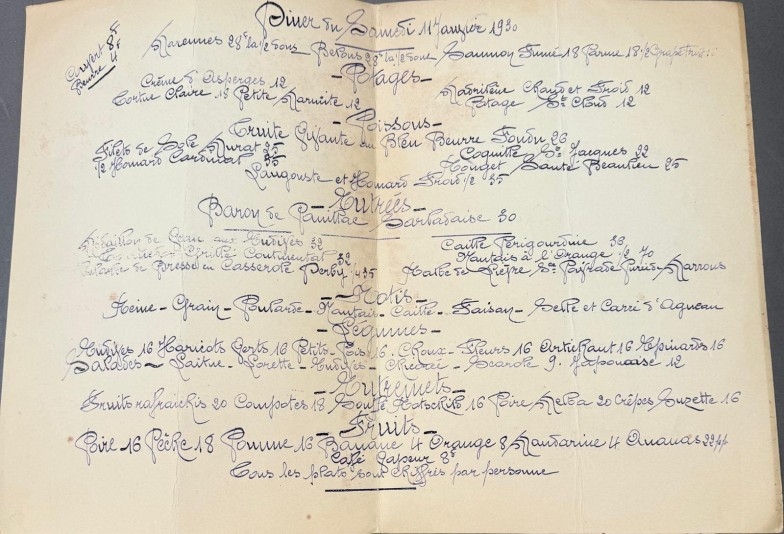 Diner du Samedi 11 Janvier 1930
Couvert 8f
Beurre 4f
Marennes 28f la 1/2 Douz Belons 38f la 1/2 Douz Saumon Fumé 18 Parme 18 1/2 Grapefruit
- Potages -
Crème d'Asperges 12 Madrilène Chaud et Froid 12
Tortue Claire 18 Petite Marmite 12 Potage St Cloud 12
- Poissons -
Truite Géante au Bleu Beurre Fondu 26
Filets de Sole Murat 25 Coquille St Jacques 22
1/2 Homard Cardinal 35 Rouget Sauté Beaulieu 25
Langouste et Homard Froid 1/2 35
- Entrées -
Baron de Pauillac Sarladaise 30
Médaillon de Veau aux Endives 32 Caille Périgourdine 33
Grillé Continental 32 Nantais à l'Orange 1/2 70
de Bresse en Casserole Derby 1/4 35 Rable de Lièvre Sce Poivrade Purée Marrons
- Rotis -
Reine - Grain - Poularde - Nantais - Caille - Faisan - Selle et Carré d'Agneau
- Légumes -
Endives 16 Haricots Verts 16 Petits-Pois 16 Choux-Fleurs 16 Artichaut 16 Epinards 16
Salades - Laitue - Lorette - Endives - Chicorée - Scarole 9. Japonaise 12
- Entremets -
Fruits rafraichis 20 Compotes 18 Soufflé Rotschild 16 Poire Melba 20 Crêpes Suzette 16
- Fruits -
Poire 16 Pêche 18 Pomme 16 Banane 4 Orange 8 Mandarine 4 Ananas 22 pp
Café Vapeur 8f
Tous les plats sont chiffrés par personne